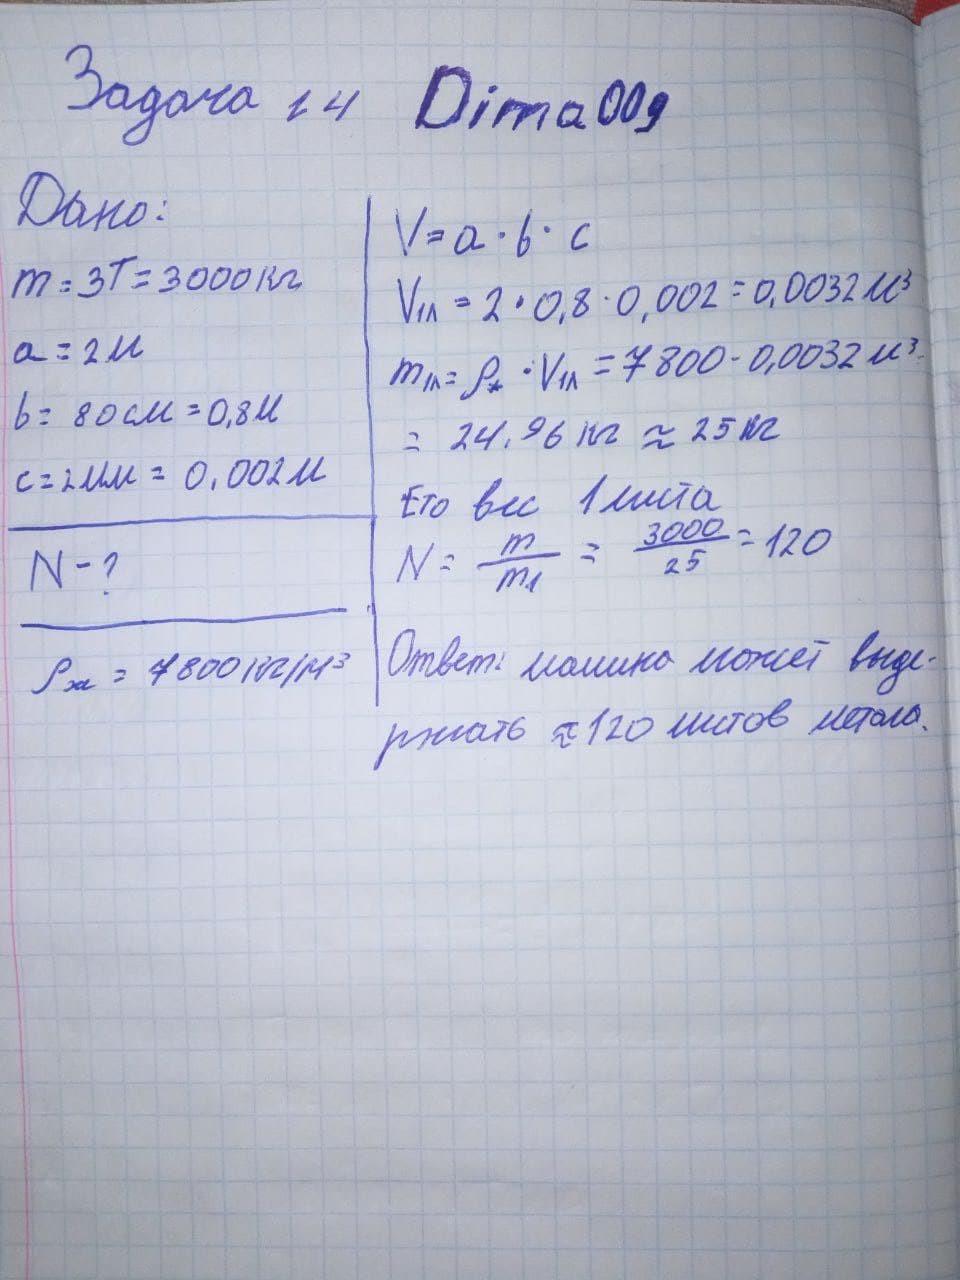 Задача 14 Dima009
Дано:
m = 3Т = 3000кг
a = 2м
b = 80см = 0,8м
c = 2мм = 0,002м
N - ?
ρж = 7800кг/м³
V = a · b · c
V1л = 2 · 0,8 · 0,002 = 0,0032м³
m1л = ρж · V1л = 7800 · 0,0032м³
= 24.96кг ≈ 25кг
Ето вес 1 листа
N = m/m1 = 3000/25 = 120
Ответ: машина может выде-
ржать ≈ 120 листов метала.